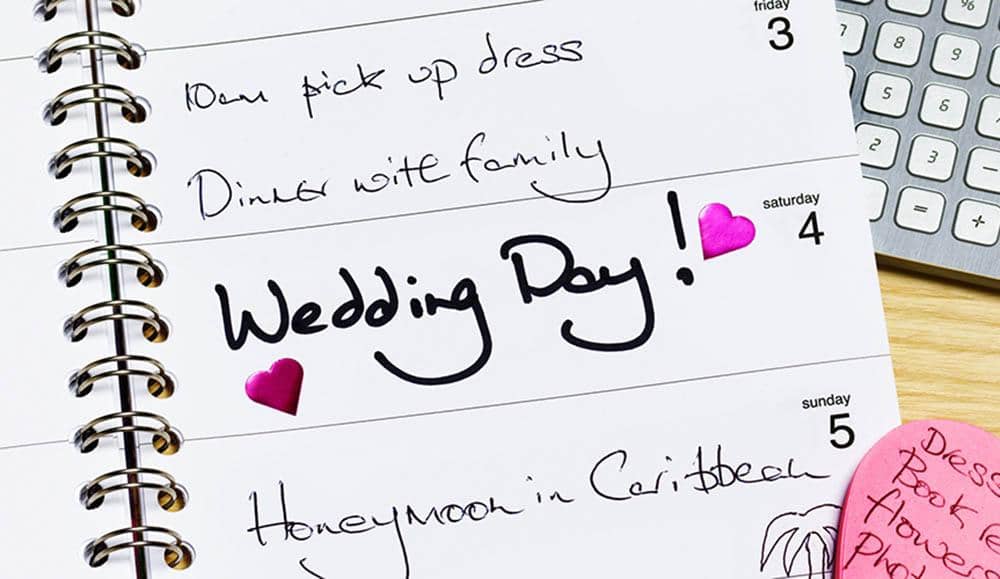 friday
3
10am pick up dress
Dinner with family
saturday
4
Wedding Day!
sunday
5
Honeymoon in Caribbean
Dress
Book
flowers
%
7
8
9
5
6
2
3
−
=
+